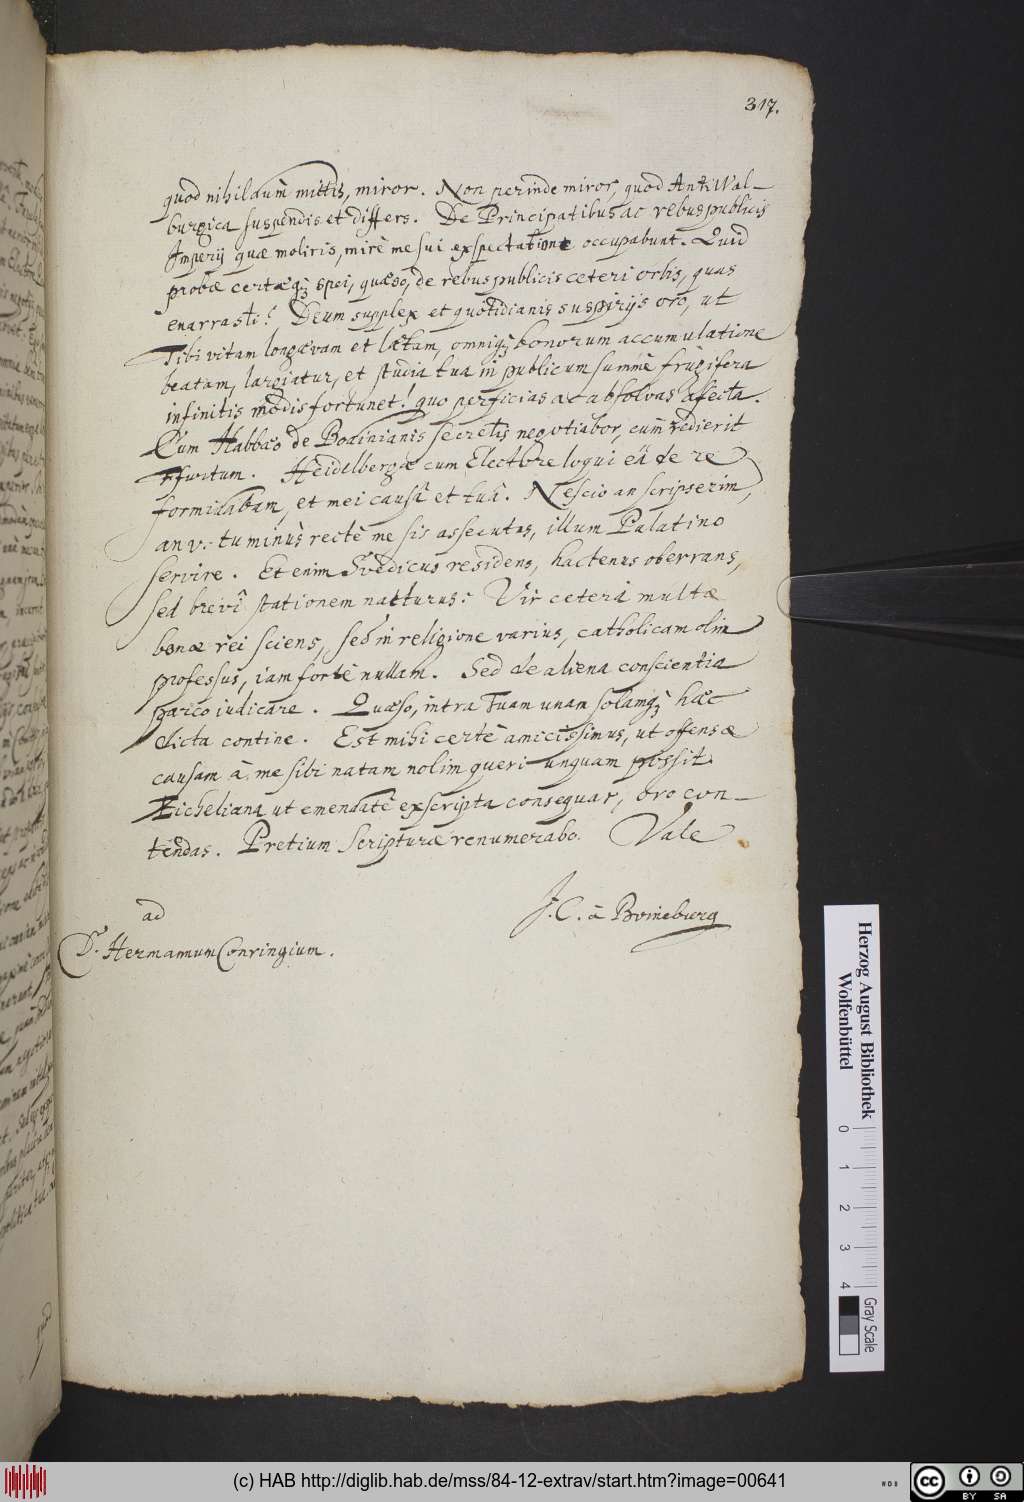 317.
quod nihil aûm mittis, miror. Non perinde miror, quod AntiWal-
burgica suspendis et differs. De Principatibus ac rebuspublicis
Imperij quæ moliris, mirè me sui exspectatione occupabunt. Quid
probæ certæq; spei, quæso, de rebuspublicis ceteri orbis, quas
enarrasti? Deum supplex et quotidianis suspirijs oro, ut
Tibi vitam longævam et lætam, omniq; bonorum accumulatione
beatam, largiatur, et studia tua in publicum summè frugifera
infinitis modis fortunet! quo perficias ac absolvas affecta.
Cum Habbæo de Boainianis secretis negotiabor, cùm redierit
Ffurtum. Heidelbergæ cum Electore loqui eâ de re
formidabam, et mei causâ et tuâ. Nescio an scripserim,
an v. tu minùs rectè me sis assecutus, illum Palatino
servire. Et enim Svedicus residens, hactenus oberrans,
sed brevî stationem nacturus. Vir ceterà multæ
bonæ rei sciens, sed in religione varius, catholicam olim
professus, iam fortè nullam. Sed de aliena conscientia
parco iudicare. Quæso, intra Tuam unam solamq; hæc
dicta contine. Est mihi certè amicissimus, ut offensæ
causam à me sibi natam nolim queri unquam possit.
Eicheliana ut emendatè exscripta consequar, oro con-
tendas. Pretium scripturæ renumerabo. Vale
J. C. à Boineburg
ad
D. Hermannum Conringium.
quod
Herzog August Bibliothek
Wolfenbüttel
0 1 2 3 4
Gray Scale
(c) HAB http://diglib.hab.de/mss/84-12-extrav/start.htm?image=00641
cc BY SA